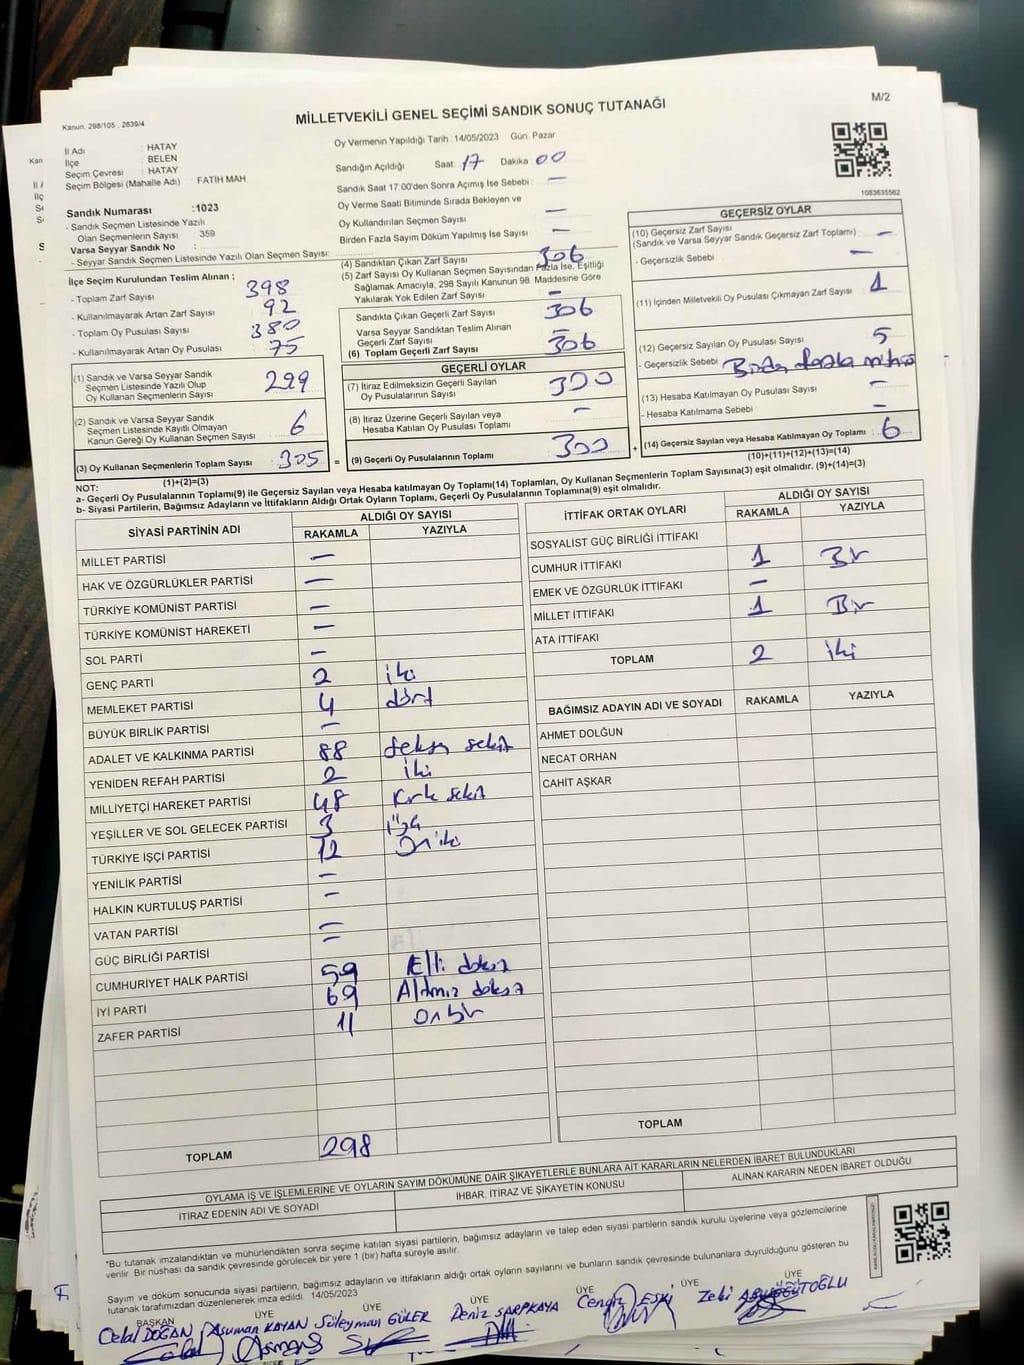 MİLLETVEKİLİ GENEL SEÇİMİ SANDIK SONUÇ TUTANAĞI
M/2
Kanun. 298/105 , 2839/4
İl Adı : HATAY
İlçe : BELEN
Seçim Çevresi : HATAY
Seçim Bölgesi (Mahalle Adı) : FATİH MAH.
Sandık Numarası :1023
- Sandık Seçmen Listesinde Yazılı
Olan Seçmenlerin Sayısı 359
Varsa Seyyar Sandık No :
- Seyyar Sandık Seçmen Listesinde Yazılı Olan Seçmen Sayısı:
Oy Vermenin Yapıldığı Tarih :14/05/2023 Gün: Pazar
Sandığın Açıldığı Saat: 17 Dakika 00
Sandık Saat 17.00'den Sonra Açımış İse Sebebi : —
Oy Verme Saati Bitiminde Sırada Bekleyen ve
Oy Kullandırılan Seçmen Sayısı —
Birden Fazla Sayım Döküm Yapılmış İse Sayısı —
1083635562
İlçe Seçim Kurulundan Teslim Alınan ;
- Toplam Zarf Sayısı 398
- Kullanılmayarak Artan Zarf Sayısı 92
- Toplam Oy Pusulası Sayısı 380
- Kullanılmayarak Artan Oy Pusulası 75
(1) Sandık ve Varsa Seyyar Sandık
Seçmen Listesinde Yazılı Olup
Oy Kullanan Seçmenlerin Sayısı 299
(2) Sandık ve Varsa Seyyar Sandık
Seçmen Listesinde Kayıtlı Olmayan
Kanun Gereği Oy Kullanan Seçmen Sayısı 6
(3) Oy Kullanan Seçmenlerin Toplam Sayısı 305 =
(1)+(2)=(3)
(4) Sandıktan Çıkan Zarf Sayısı 306
(5) Zarf Sayısı Oy Kullanan Seçmen Sayısından Fazla İse, Eşitliği
Sağlamak Amacıyla, 298 Sayılı Kanunun 98. Maddesine Göre
Yakılarak Yok Edilen Zarf Sayısı —
Sandıkta Çıkan Geçerli Zarf Sayısı 306
Varsa Seyyar Sandıktan Teslim Alınan
Geçerli Zarf Sayısı —
(6) Toplam Geçerli Zarf Sayısı 306
GEÇERLİ OYLAR
(7) İtiraz Edilmeksizin Geçerli Sayılan
Oy Pusulalarının Sayısı 300
(8) İtiraz Üzerine Geçerli Sayılan veya
Hesaba Katılan Oy Pusulası Toplamı —
(9) Geçerli Oy Pusulalarının Toplamı 300 +
GEÇERSİZ OYLAR
(10) Geçersiz Zarf Sayısı
(Sandık ve Varsa Seyyar Sandık Geçersiz Zarf Toplamı) —
- Geçersizlik Sebebi —
(11) İçinden Milletvekili Oy Pusulası Çıkmayan Zarf Sayısı 1
(12) Geçersiz Sayılan Oy Pusulası Sayısı 5
- Geçersizlik Sebebi Birden fazla mühür
(13) Hesaba Katılmayan Oy Pusulası Sayısı —
- Hesaba Katılmama Sebebi —
(14) Geçersiz Sayılan veya Hesaba Katılmayan Oy Toplamı 6
(10)+(11)+(12)+(13)=(14)
NOT:
a- Geçerli Oy Pusulalarının Toplamı(9) ile Geçersiz Sayılan veya Hesaba katılmayan Oy Toplamı(14) Toplamları, Oy Kullanan Seçmenlerin Toplam Sayısına(3) eşit olmalıdır. (9)+(14)=(3)
b- Siyasi Partilerin, Bağımsız Adayların ve İttifakların Aldığı Ortak Oyların Toplamı, Geçerli Oy Pusulalarının Toplamına(9) eşit olmalıdır.
SİYASİ PARTİNİN ADI ALDIĞI OY SAYISI
RAKAMLA YAZIYLA
MİLLET PARTİSİ —
HAK VE ÖZGÜRLÜKLER PARTİSİ —
TÜRKİYE KOMÜNİST PARTİSİ —
TÜRKİYE KOMÜNİST HAREKETİ —
SOL PARTİ —
GENÇ PARTİ 2 iki
MEMLEKET PARTİSİ 4 dört
BÜYÜK BİRLİK PARTİSİ —
ADALET VE KALKINMA PARTİSİ 88 Seksen sekiz
YENİDEN REFAH PARTİSİ 2 iki
MİLLİYETÇİ HAREKET PARTİSİ 48 Kırk sekiz
YEŞİLLER VE SOL GELECEK PARTİSİ 3 üç
TÜRKİYE İŞÇİ PARTİSİ 12 On iki
YENİLİK PARTİSİ —
HALKIN KURTULUŞ PARTİSİ —
VATAN PARTİSİ —
GÜÇ BİRLİĞİ PARTİSİ —
CUMHURİYET HALK PARTİSİ 59 Elli dokuz
İYİ PARTİ 69 Altmış dokuz
ZAFER PARTİSİ 11 On bir
TOPLAM 298
İTTİFAK ORTAK OYLARI ALDIĞI OY SAYISI
RAKAMLA YAZIYLA
SOSYALİST GÜÇ BİRLİĞİ İTTİFAKI
CUMHUR İTTİFAKI 1 Bir
EMEK VE ÖZGÜRLÜK İTTİFAKI —
MİLLET İTTİFAKI 1 Bir
ATA İTTİFAKI
TOPLAM 2 iki
BAĞIMSIZ ADAYIN ADI VE SOYADI RAKAMLA YAZIYLA
AHMET DOLĞUN
NECAT ORHAN
CAHİT AŞKAR
TOPLAM
OYLAMA İŞ VE İŞLEMLERİNE VE OYLARIN SAYIM DÖKÜMÜNE DAİR ŞİKAYETLERLE BUNLARA AİT KARARLARIN NELERDEN İBARET BULUNDUKLARI
İTİRAZ EDENİN ADI VE SOYADI İHBAR, İTİRAZ VE ŞİKAYETİN KONUSU ALINAN KARARIN NEDEN İBARET OLDUĞU
*Bu tutanak imzalandıktan ve mühürlendikten sonra seçime katılan siyasi partilerin, bağımsız adayların ve talep eden siyasi partilerin sandık kurulu üyelerine veya gözlemcilerine
verilir. Bir nüshası da sandık çevresinde görülecek bir yere 1 (bir) hafta süreyle asılır.
Sayım ve döküm sonucunda siyasi partilerin, bağımsız adayların ve ittifakların aldığı ortak oyların sayılarını ve bunların sandık çevresinde bulunanlara duyrulduğunu gösteren bu
tutanak tarafımızdan düzenlenerek imza edildi. 14/05/2023
BAŞKAN ÜYE ÜYE ÜYE ÜYE ÜYE
Celal DOĞAN Asuman KAYAN Süleyman GÜLER Deniz SARPKAYA Cengiz ESKİ Zeki